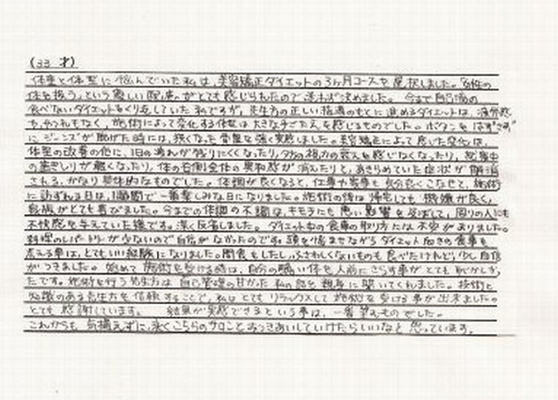 (33 才)
体重と体型に悩んでいた私は、美容矯正ダイエットの3ヶ月コースを選択しました。女性の
体を扱うという厳しい眼差しがとても感じられたので迷わず決めました。今まで自己流の
食べないダイエットをくり返していた私ですが、先生方の正しい指導のもとに進めるダイエットは、満分感
も、やつれもなく、施術によって変化する体型は大きな手ごたえを感じるものでした。ボタンをはずさず
にジーンズが脱げた時には、狭くなった骨盤を強く実感しました。美容矯正によって感じた変化は、
体型の改善の他に、1日の疲れが残りにくくなったり、夕方の視力の衰えを感じなくなったり、就寝中
の歯ぎしりが無くなったり、体の右側全体の異和感が消えたりと、あきらめていた症状が解消
される、かなり具体的なものでした。体調が良くなると、仕事や家事も気分良くこなせて、施術
に訪ずれる日は、1週間で一番楽しみな日になりました。施術の後は帰宅しても機嫌が良く、
家族がとても喜びました。今までの体調の不調は、キモチにも悪い影響を及ぼして、周りの人にも
不快感を与えていた様です。深く反省しました。ダイエット中の食事の取り方には不安がありました。
料理のレパートリーが少ないので自信がなかったのです。頭を悩ませながらダイエット向きの食事を
考える事は、とてもいい経験になりました。間食もしたしふさわしくないものも食べたけれど少し自信
がつきました。始めて施術を受ける時は、自分の醜い体を人前にさらす事がとても恥かしかっ
たです。施術を行う先生方は自己管理の甘かった私の話を親身に聞いてくれました。技術と
知識のある先生方を信頼することで、私はとてもリラックスして施術を受ける事が出来ました。
とても感謝しています。 結果が実感できるという事は、一番望むものでした。
これからも気構えずに、永くこちらのサロンとおつきあいしていけたらいいなと思っています。